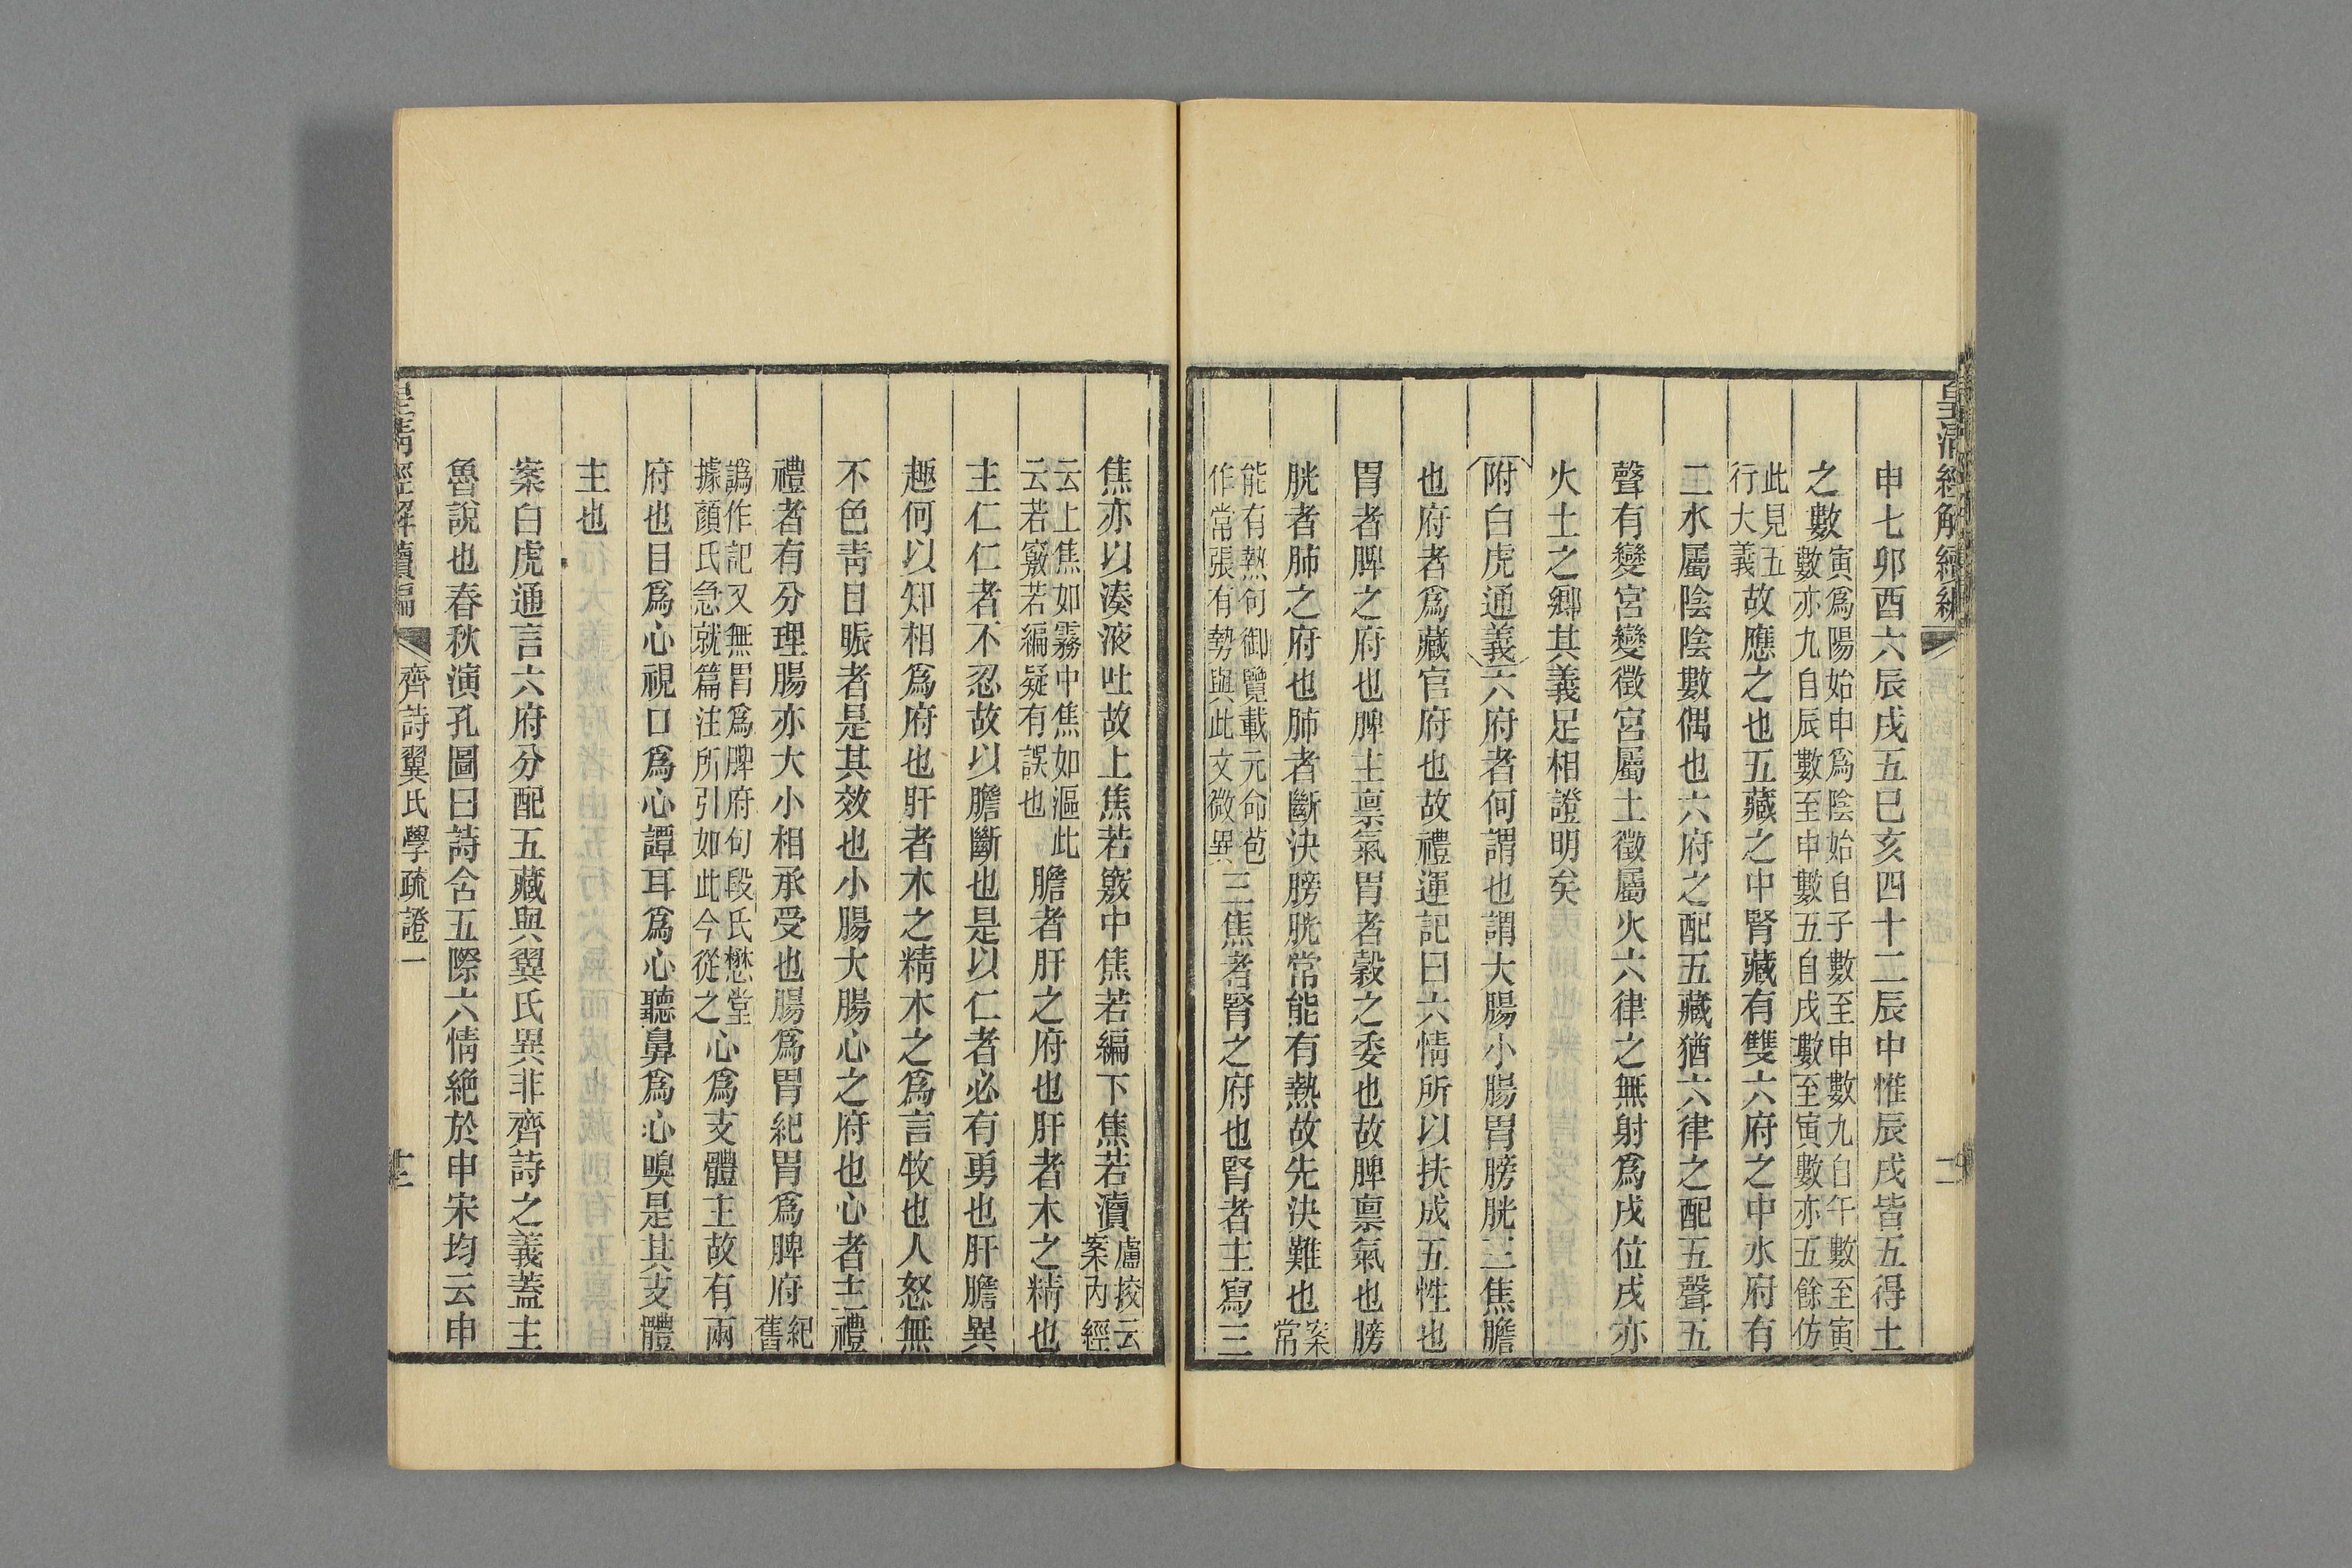 皇清經解續編
二
申七卯酉六辰戌五巳亥四十二辰中惟辰戌皆五得土
之數寅爲陽始申爲陰始自子數至申數九自午數至寅
數亦九自辰數至申數五自戌數至寅數亦五餘仿
此見五
行大義故應之也五藏之中腎藏有雙六府之中水府有
二水屬陰陰數偶也六府之配五藏猶六律之配五聲五
聲有變宮變徵宮屬土徵屬火六律之無射爲戌位戌亦
火土之鄉其義足相證明矣
附白虎通義六府者何謂也謂大腸小腸胃膀胱三焦膽
也府者爲藏官府也故禮運記曰六情所以扶成五性也
胃者脾之府也脾主禀氣胃者穀之委也故脾禀氣也膀
胱者肺之府也肺者斷決膀胱常能有熱故先決難也案
常
能有熱句御覽載元命苞
作常張有勢與此文微異三焦者腎之府也腎者主寫三
焦亦以湊液吐故上焦若竅中焦若編下焦若瀆盧挍云
案內經
云上焦如霧中焦如漚此
云若竅若編疑有誤也膽者肝之府也肝者木之精也
主仁仁者不忍故以膽斷也是以仁者必有勇也肝膽異
趣何以知相爲府也肝者木之精木之爲言牧也人怒無
不色靑目䀼者是其效也小腸大腸心之府也心者主禮
禮者有分理腸亦大小相承受也腸爲胃紀胃爲脾府紀
舊
譌作記又無胃爲脾府句段氏懋堂
據顏氏急就篇注所引如此今從之心爲支體主故有兩
府也目爲心視口爲心譚耳爲心聽鼻爲心嗅是其支體
主也
案白虎通言六府分配五藏與翼氏異非齊詩之義蓋主
魯說也春秋演孔圖曰詩含五際六情絶於申宋均云申
皇清經解續編
齊詩翼氏學疏證一